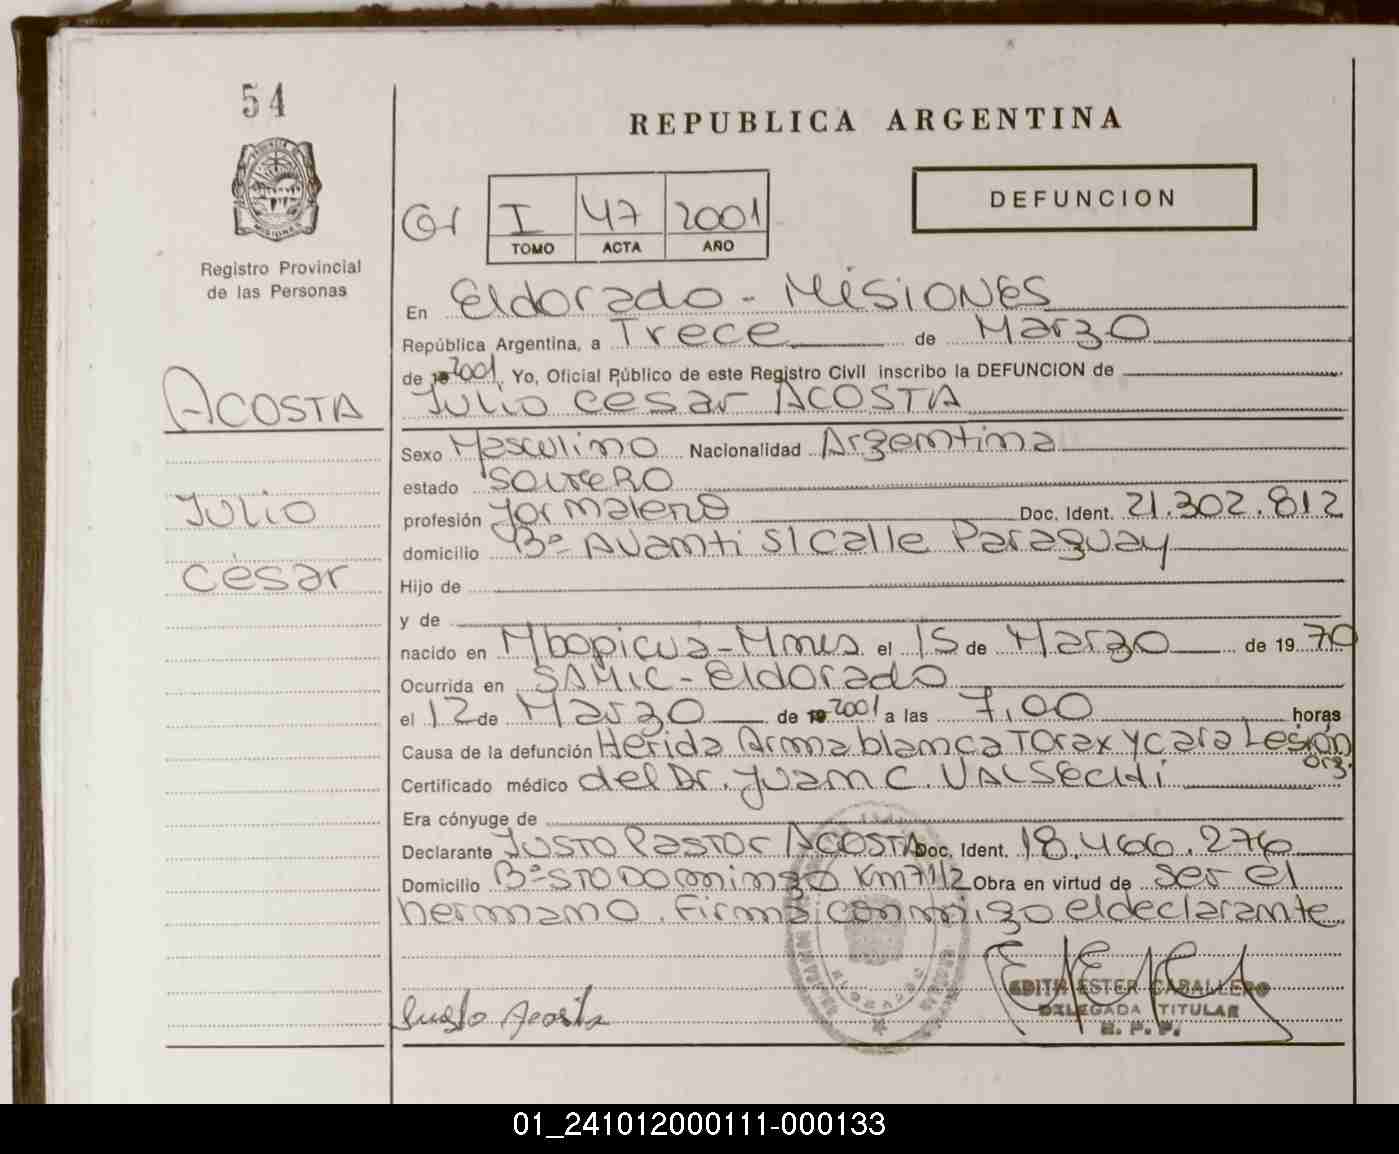 54
REPUBLICA ARGENTINA
DEFUNCION
I 47 2001
TOMO ACTA AÑO
Registro Provincial
de las Personas
En Eldorado - Misiones
República Argentina, a Trece de Marzo
de 2001, Yo, Oficial Público de este Registro Civil inscribo la DEFUNCION de
ACOSTA
Julio César ACOSTA
Sexo Masculino Nacionalidad Argentina
estado SOLTERO
Julio
profesión Jornalero Doc. Ident. 21.302.812
domicilio Bº Avanti S/calle Paraguay
César
Hijo de
y de
nacido en Mbopicuá - Mnes el 15 de Marzo de 1970
Ocurrida en SAMIC - Eldorado
el 12 de Marzo de 2001 a las 7,00 horas
Causa de la defunción Herida Arma blanca Torax y cara Lesión
Org.
Certificado médico del Dr. Juan C. VALSECHI
Era cónyuge de
Declarante Justo Pastor ACOSTA Doc. Ident. 18.466.276
Domicilio Bº STO Domingo Km 7 1/2 Obra en virtud de ser el
hermano. Firma conmigo el declarante
Justo Acosta
EDITH ESTER CABALLERO
DELEGADA TITULAR
R. P. P.
01_241012000111-000133